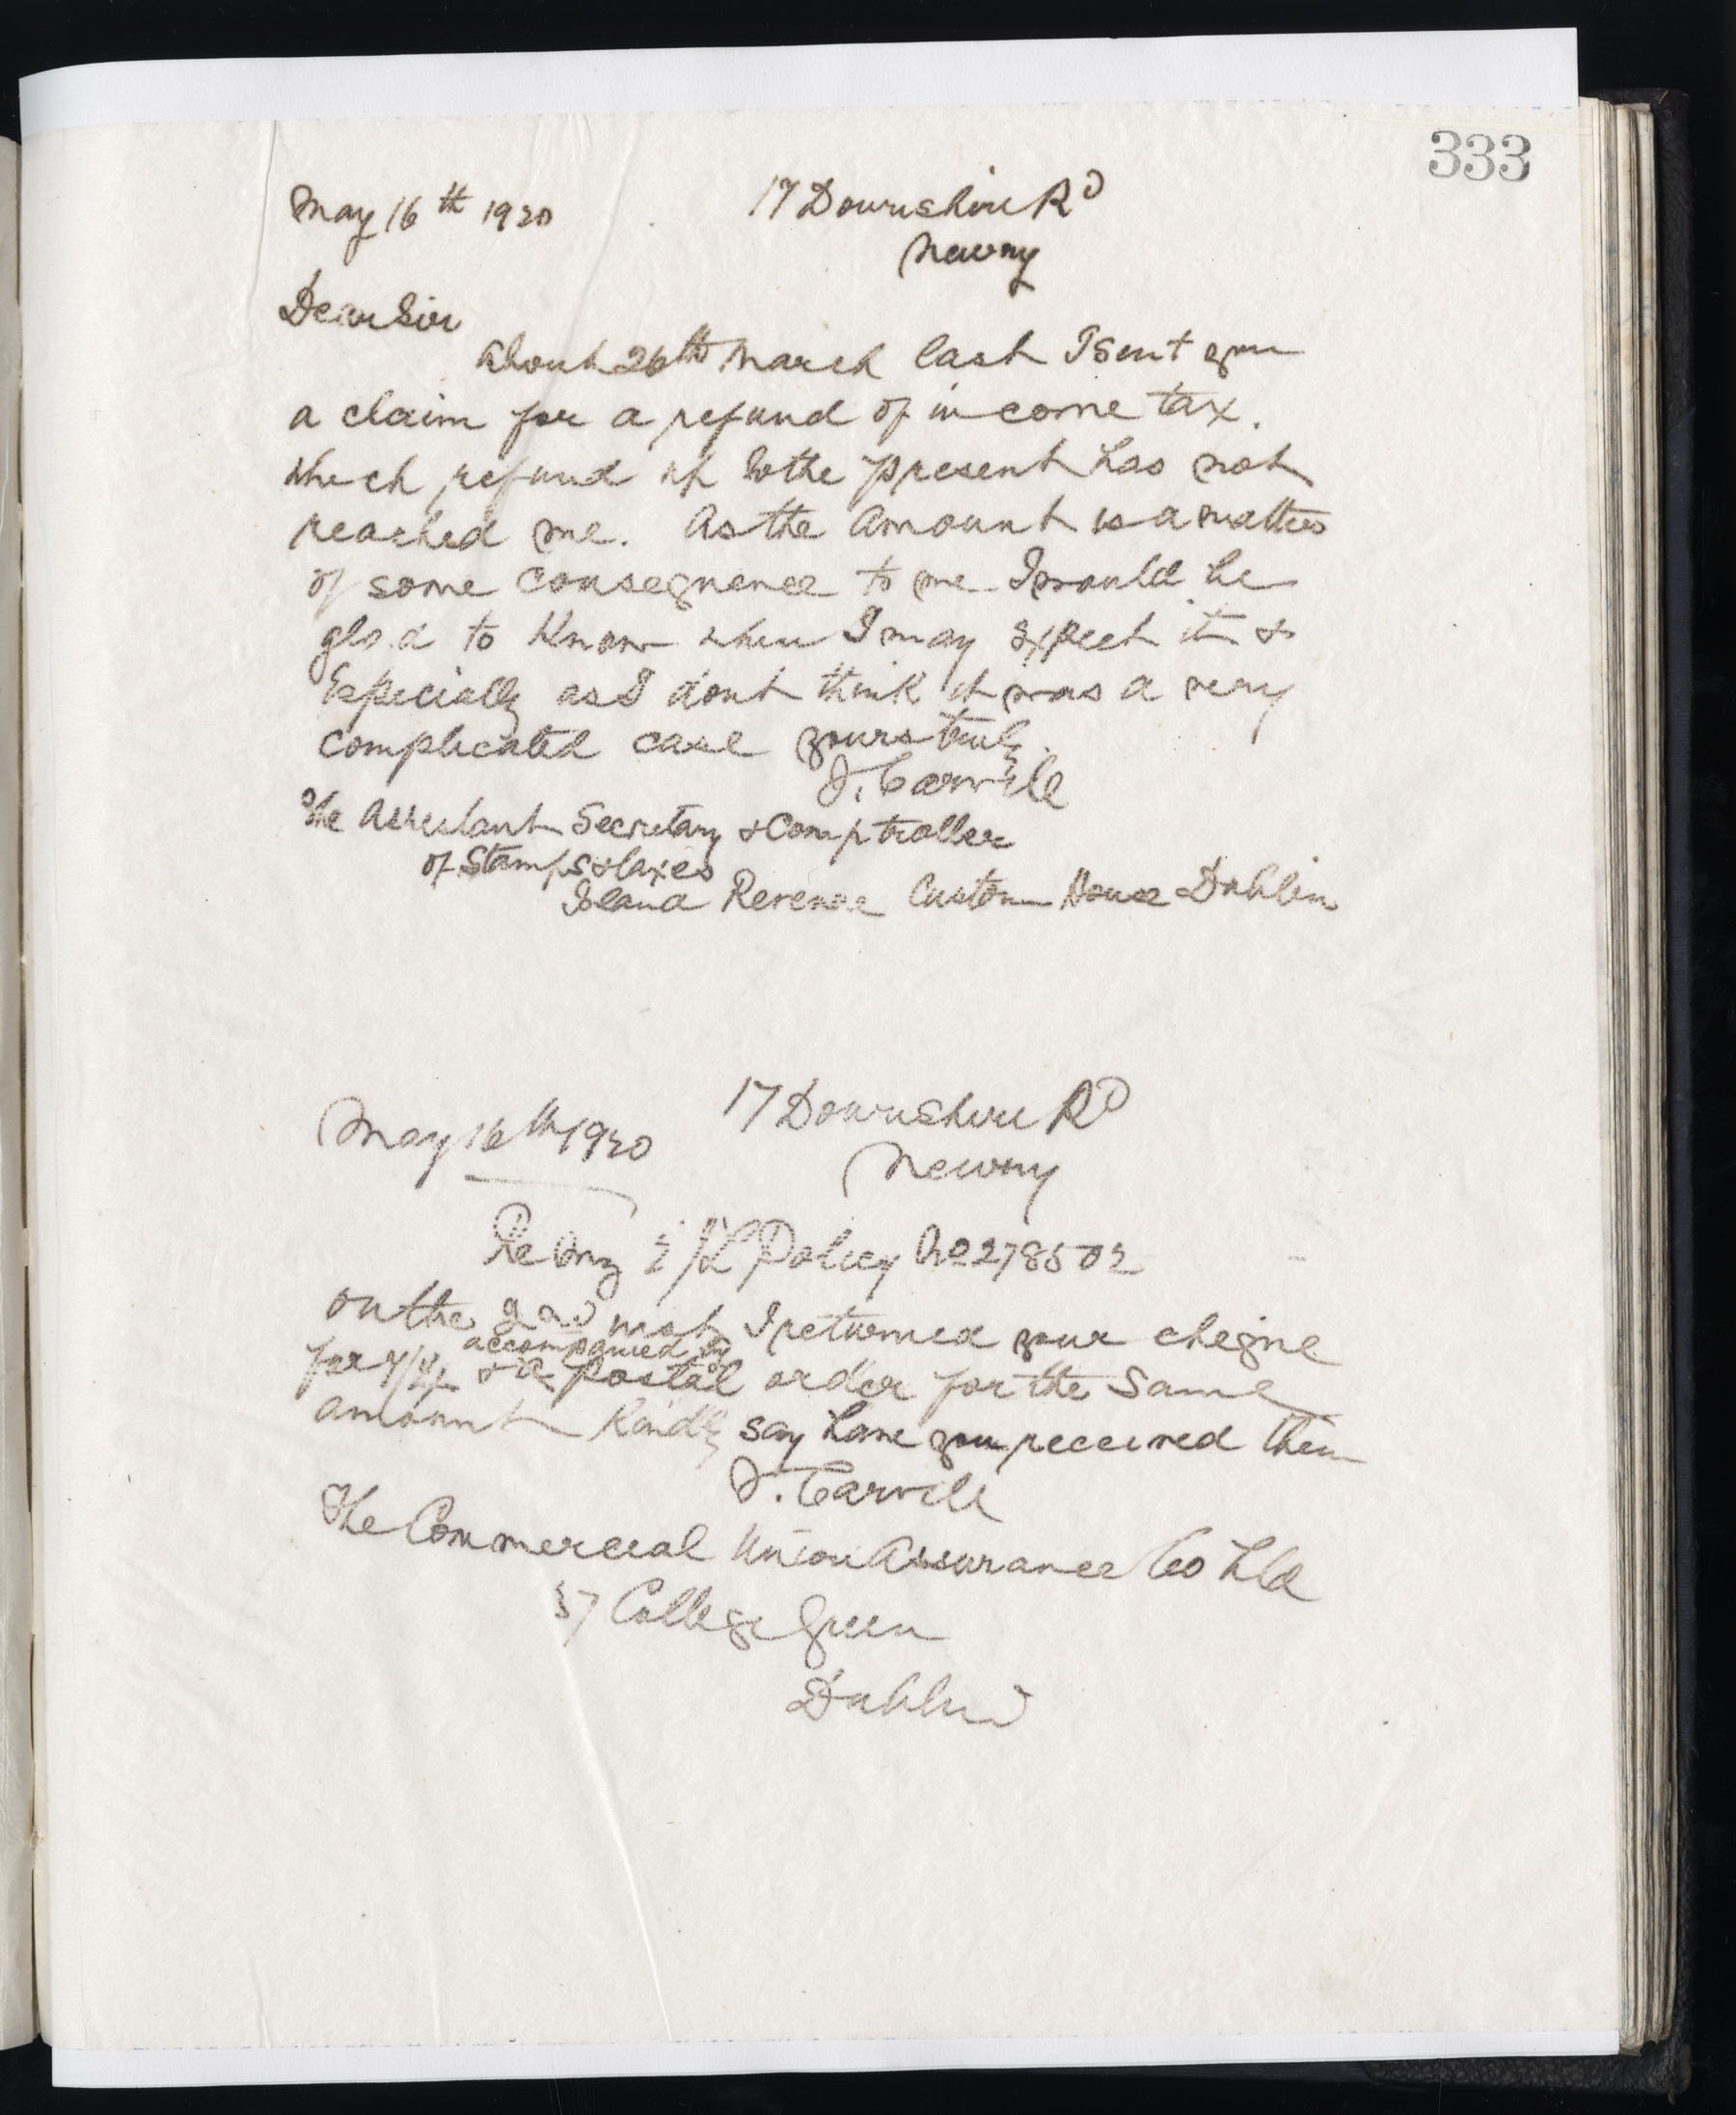 333
May 16th 1920 17 Downshire Rd
Newry
Dear Sir
About 26th March last I sent you
a claim for a refund of income tax.
which refund up to the present has not
reached me. As the amount is a matter
of some consequence to me I would be
glad to know when I may expect it &
Especially as I dont think it was a very
complicated case yours truly.
J. Carvill
The Assistant Secretary & Comptroller
of Stamps & taxes
Inland Revenue Custom House Dublin
May 16th 1920 17 Downshire Rd
Newry
Re my Policy No 278502
on the 2nd inst I returned your cheque
accompanied by
for 4/4 & a postal order for the same
amount Kindly say have you received them
J. Carvill
The Commercial Union Assurance Co Ltd
37 College Green
Dublin